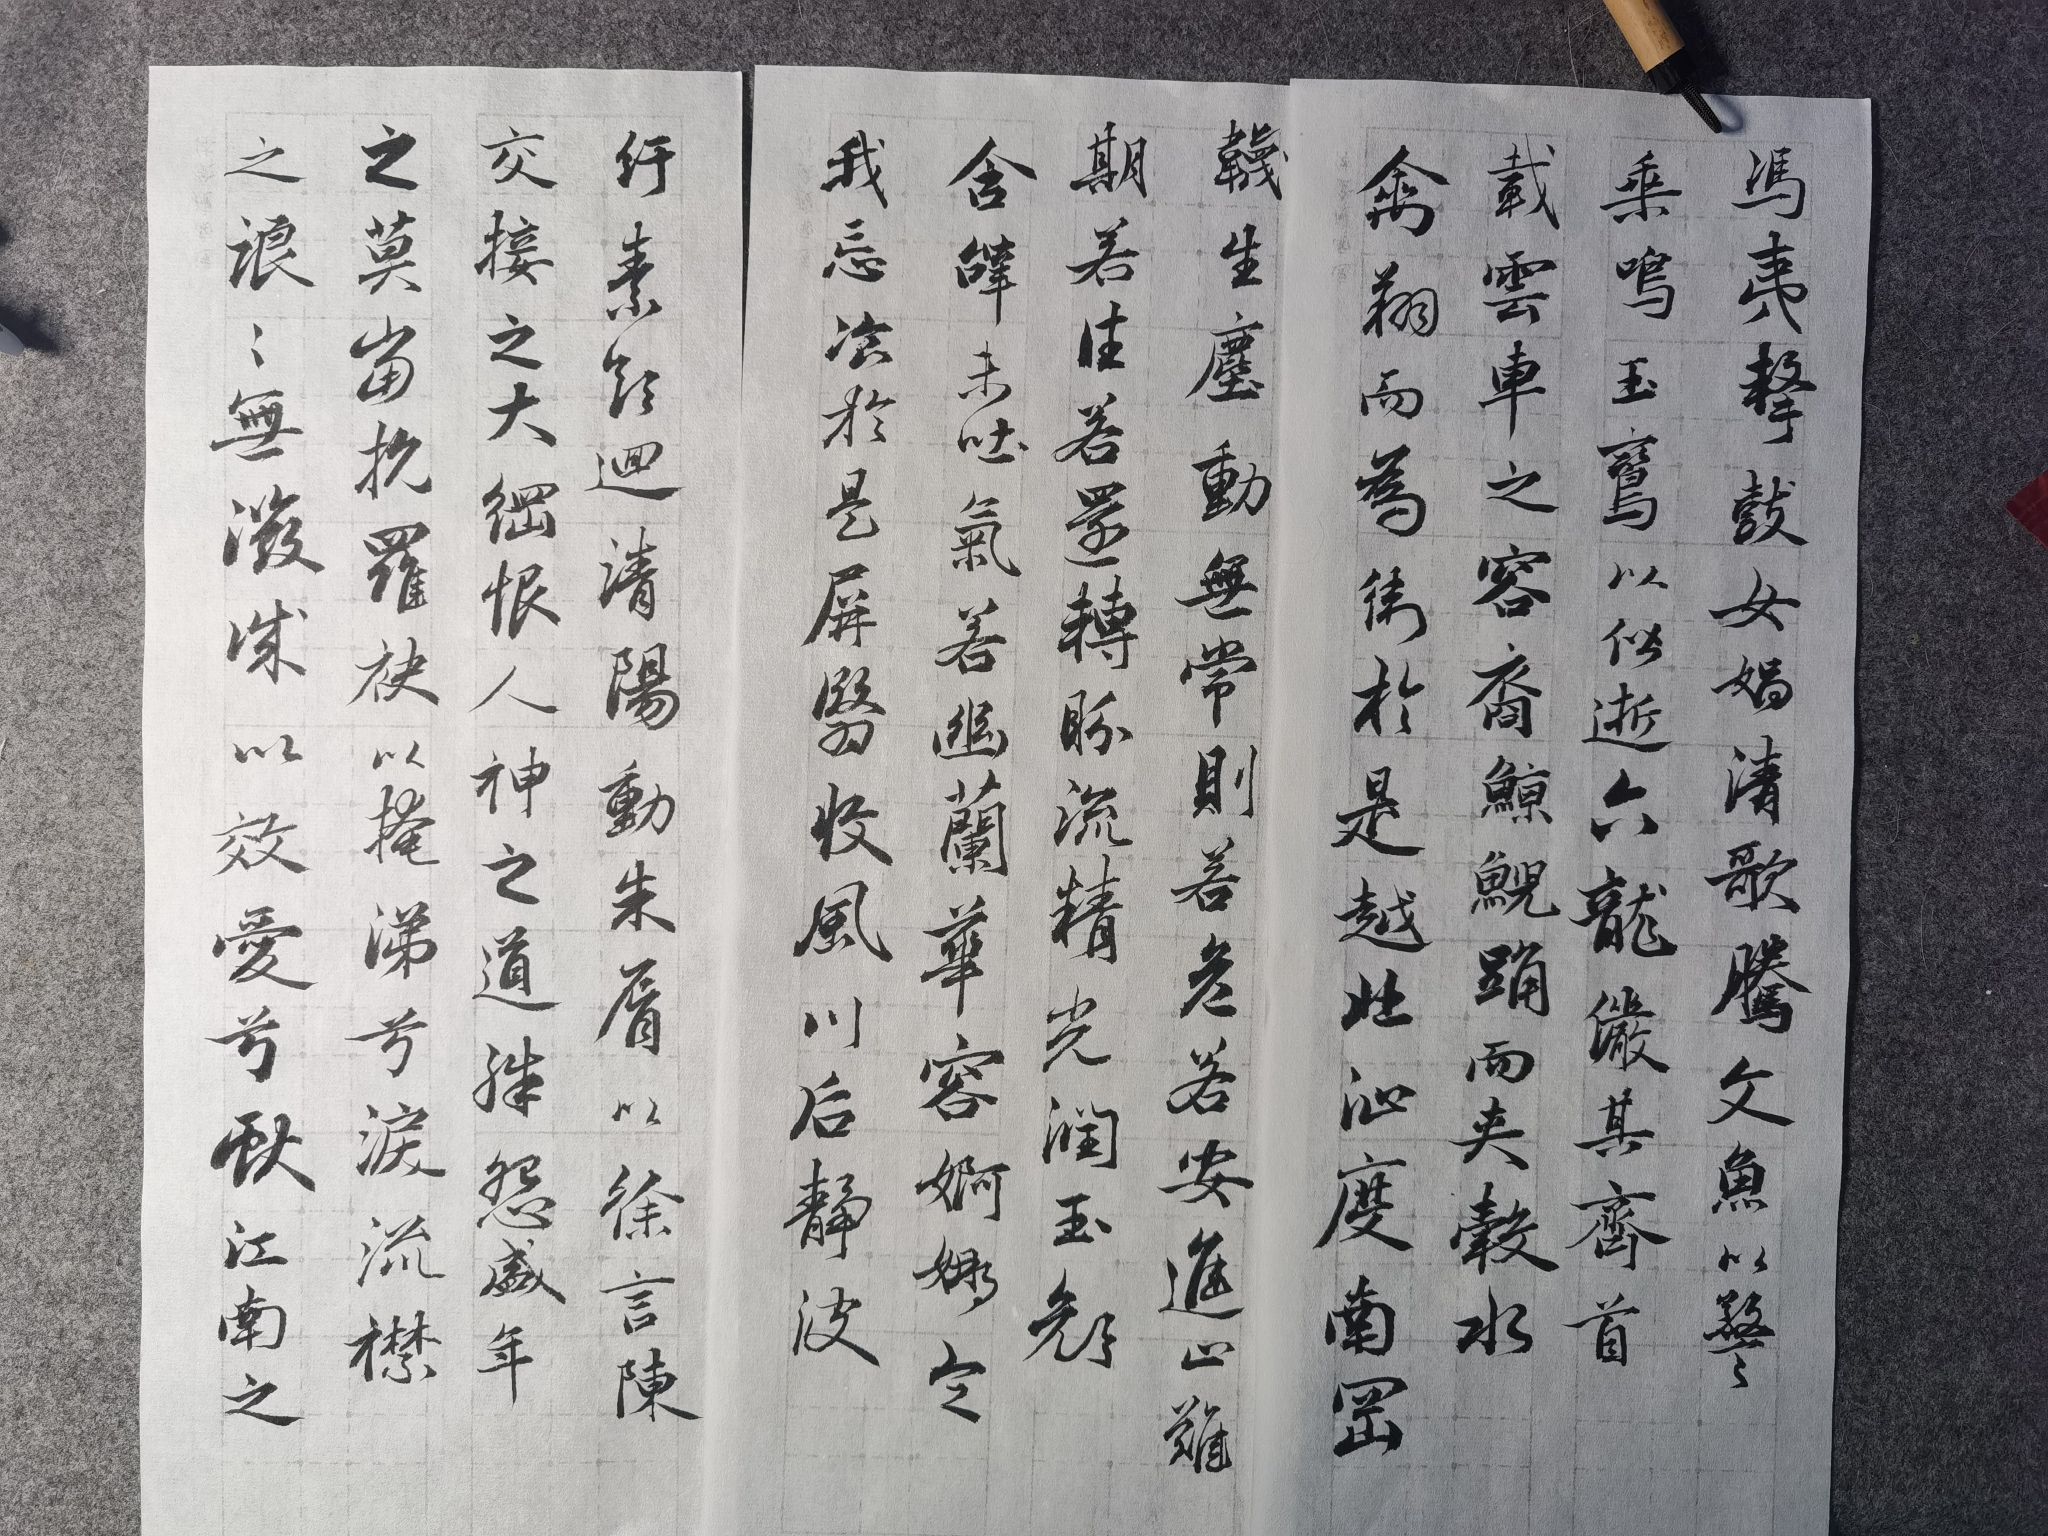 馮夷擊鼓女媧清歌騰文魚以警
乗鳴玉鸞以偕逝六龍儼其齊首
載雲車之容裔鯨鯢踊而夾轂水
禽翔而為衛於是越北沚度南岡
韈生塵動無常則若危若安進止難
期若往若還轉眄流精光潤玉顏
含辭未吐氣若幽蘭華容婀娜令
我忘飡於是屏翳收風川后靜波
紆素領迴清陽動朱脣以徐言陳
交接之大綱恨人神之道殊怨盛年
之莫當抗羅袂以掩涕兮淚流襟
之浪〻無微誠以效愛兮獻江南之